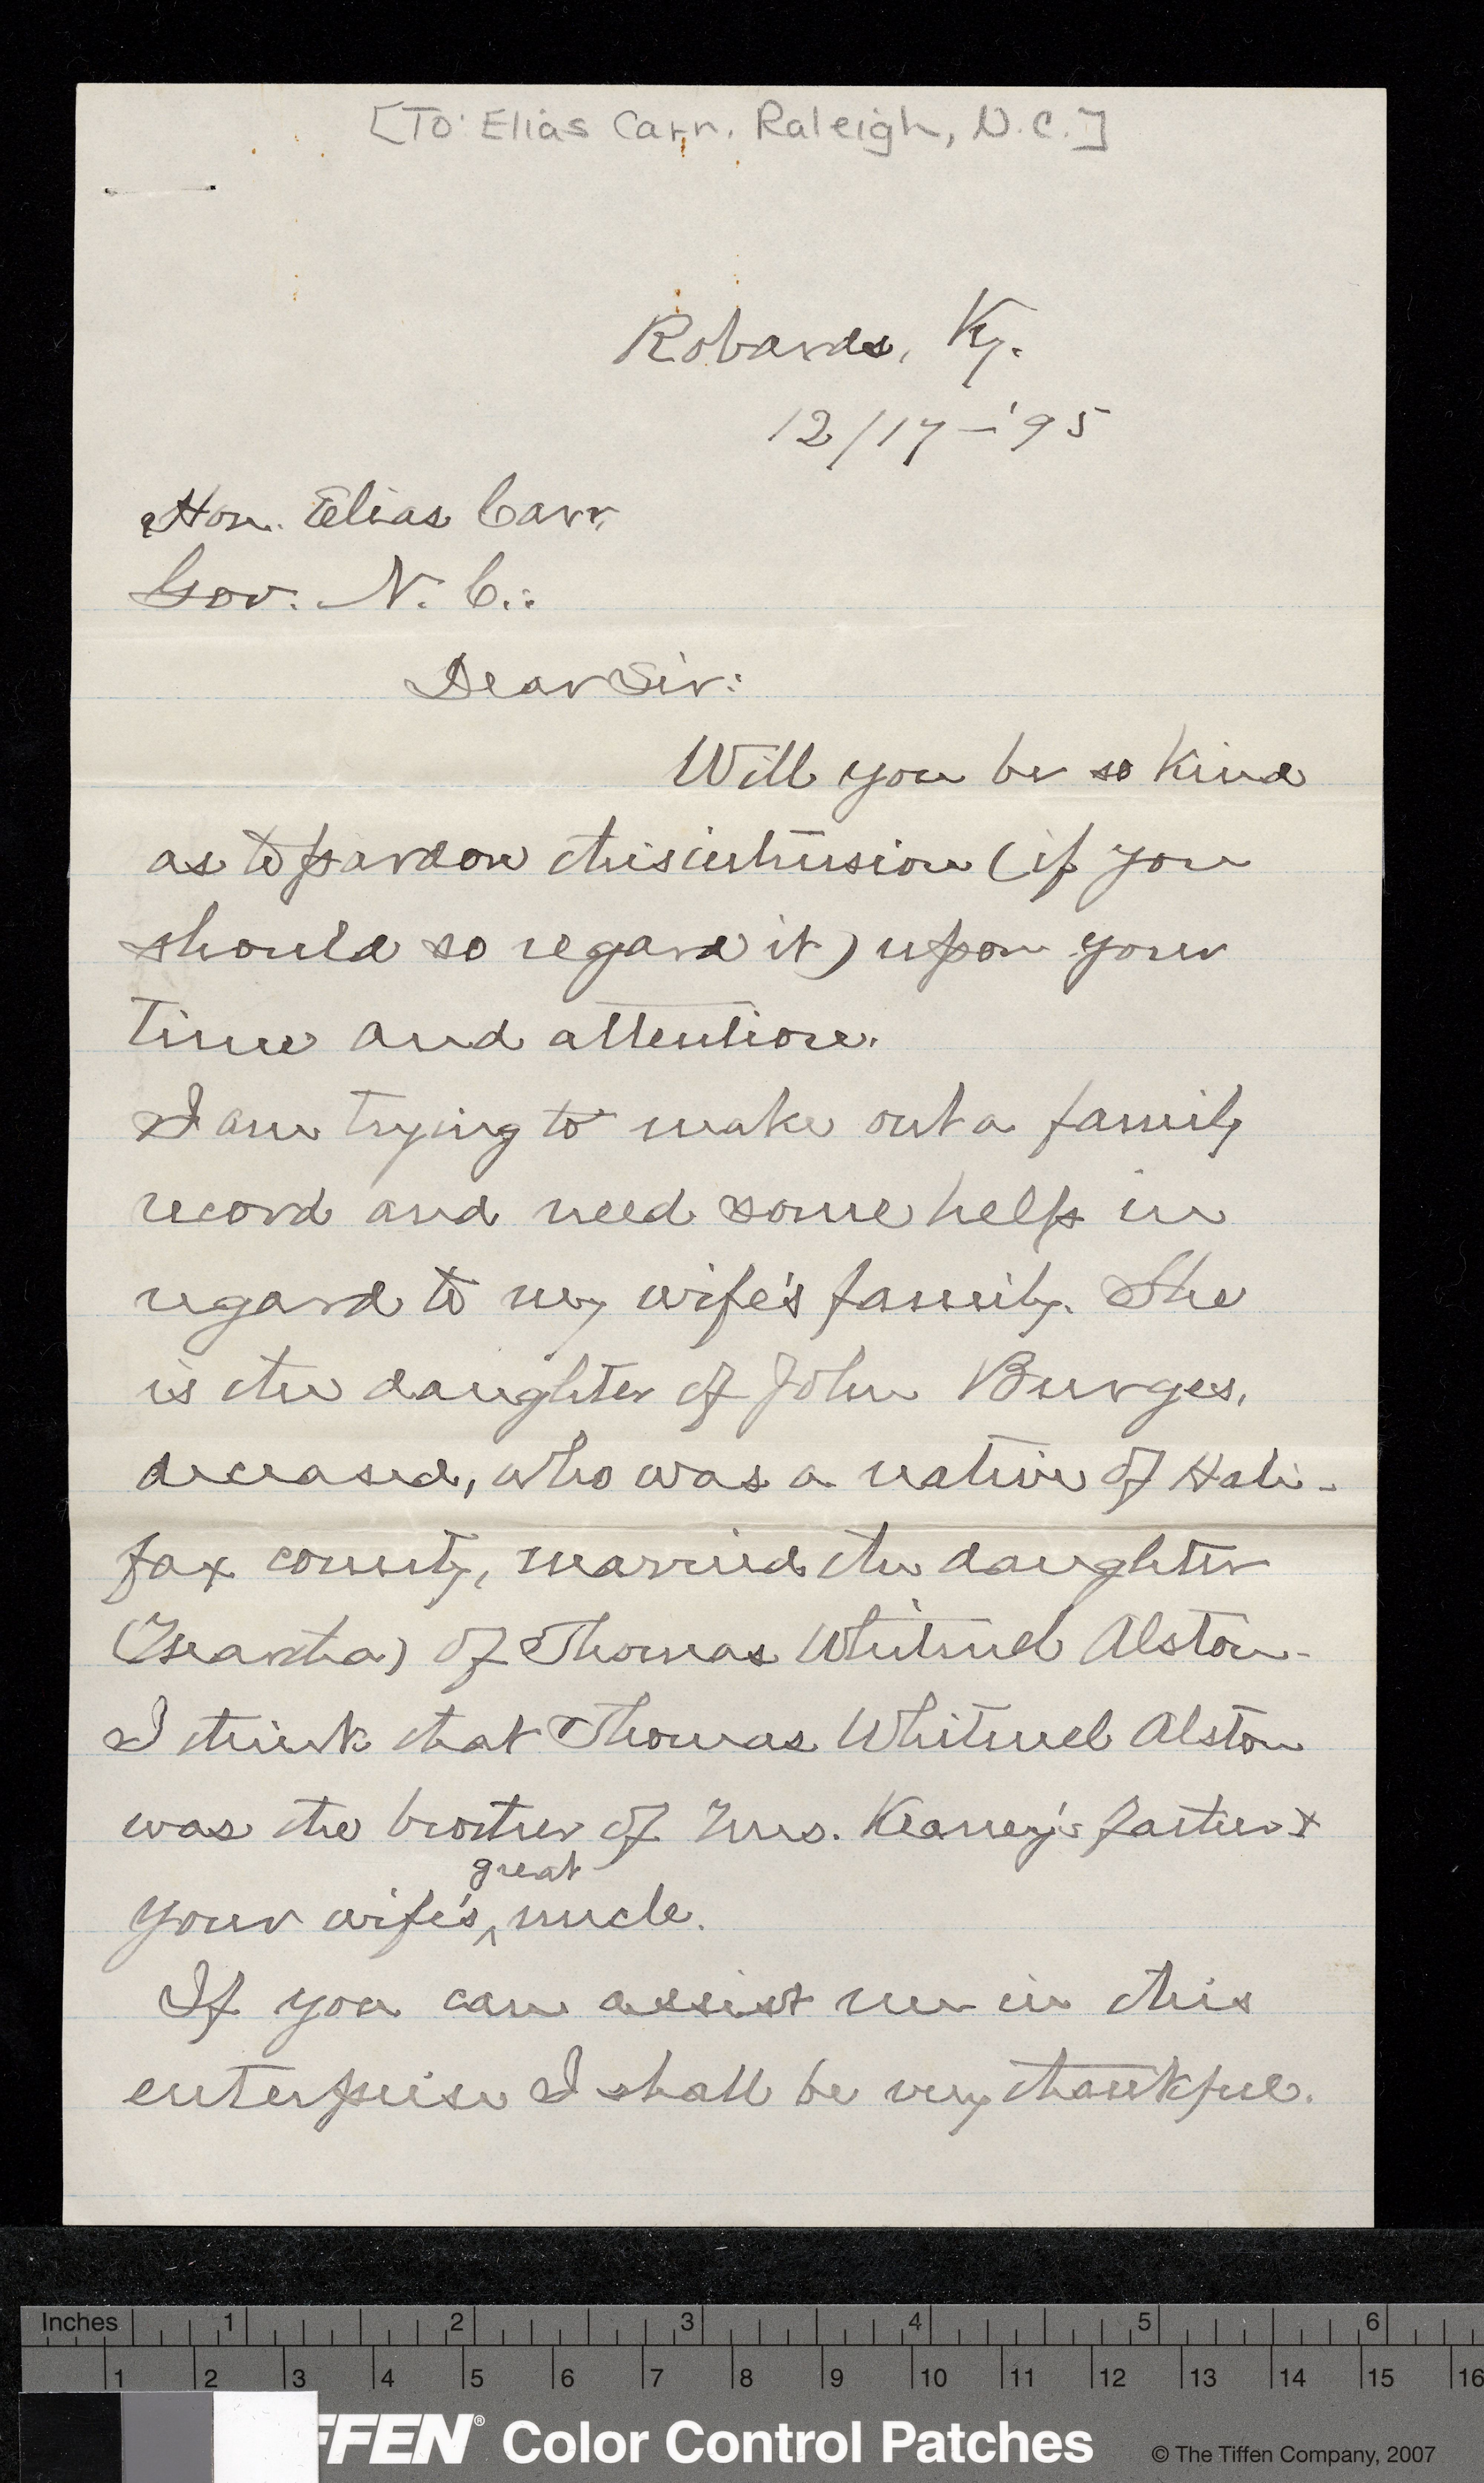 [To: Elias Carr, Raleigh, N.C.]
Robards, Ky.
12/17–'95
Hon. Elias Carr,
Gov. N. C.:
Dear Sir:
Will you be so kind
as to pardon this intrusion (if you
should so regard it) upon your
time and attention.
I am trying to make out a family
record and need some help in
regard to my wife's family. She
is the daughter of John Burges,
deceased, who was a native of Hali-
fax county, married the daughter
(Martha) of Thomas Whitmel Alston.
I think that Thomas Whitmel Alston
was the brother of Mrs. Kearney's father &
great
your wife's ^ uncle.
If you can assist me in this
enterprise I shall be very thankful.
Inches 1 2 3 4 5 6
1 2 3 4 5 6 7 8 9 10 11 12 13 14 15 16
FFEN® Color Control Patches © The Tiffen Company, 2007